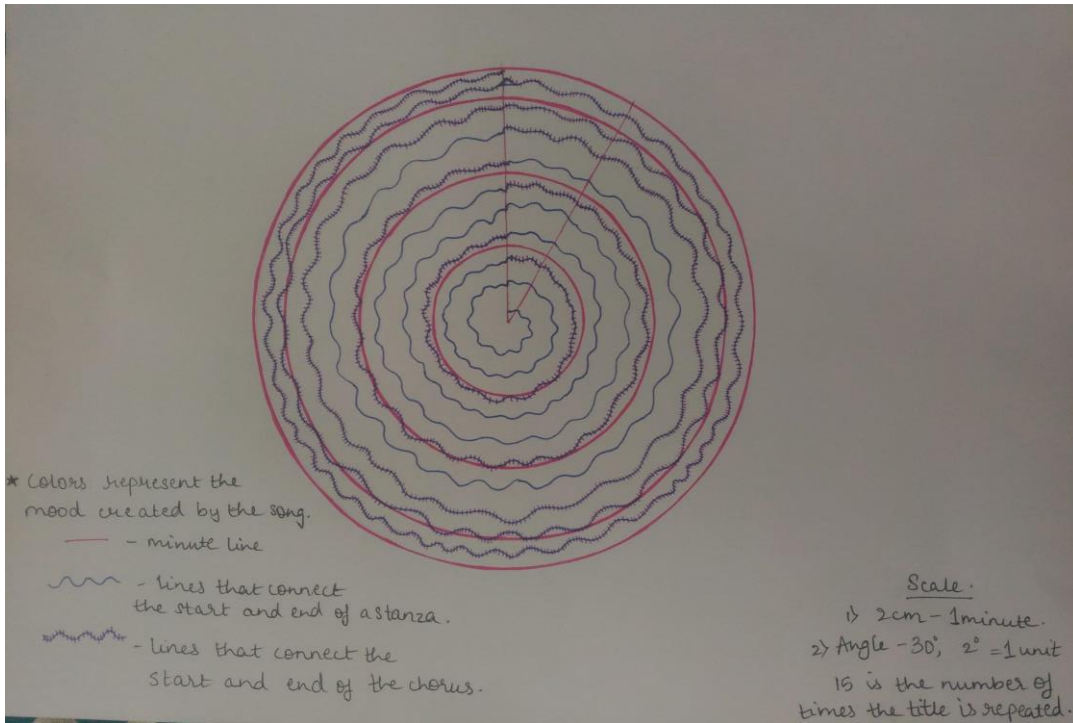 * Colors represent the
mood created by the song.
- minute line
- lines that connect
the start and end of a stanza.
- lines that connect the
start and end of the chorus.
Scale.
1) 2cm - 1minute.
2) Angle - 30°, 2° = 1 unit
15 is the number of
times the title is repeated.